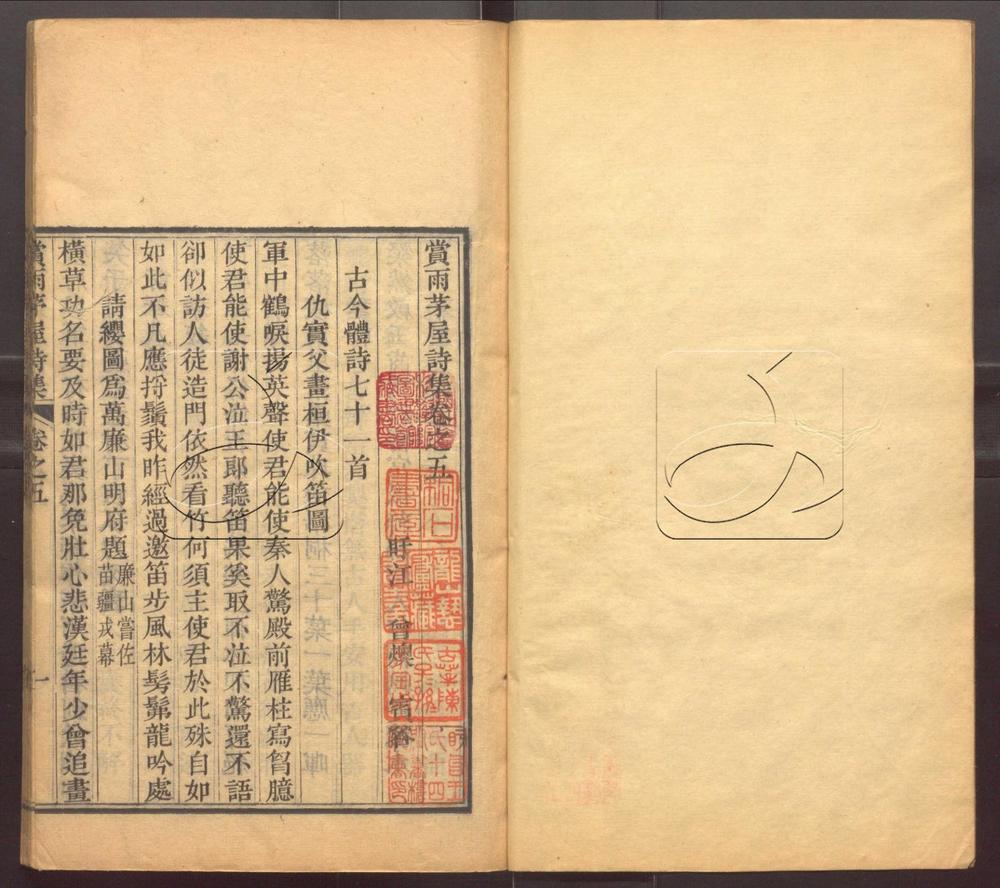 賞雨茅屋詩集卷之五
盱江 曾燠 賓谷
古今體詩七十一首
仇實父畫桓伊吹笛圖
軍中鶴唳揚英聲使君能使秦人驚殿前雁柱寫胷臆
使君能使謝公泣王郎聽笛果奚取不泣不驚還不語
卻似訪人徒造門依然看竹何須主使君於此殊自如
如此不凡應捋鬚我昨經過邀笛步風林髣髴龍吟處
請纓圖爲萬廉山明府題廉山嘗佐
苗疆戎幕
橫草功名要及時如君那免壯心悲漢廷年少曾追畫
賞雨茅屋詩集 卷之五 一